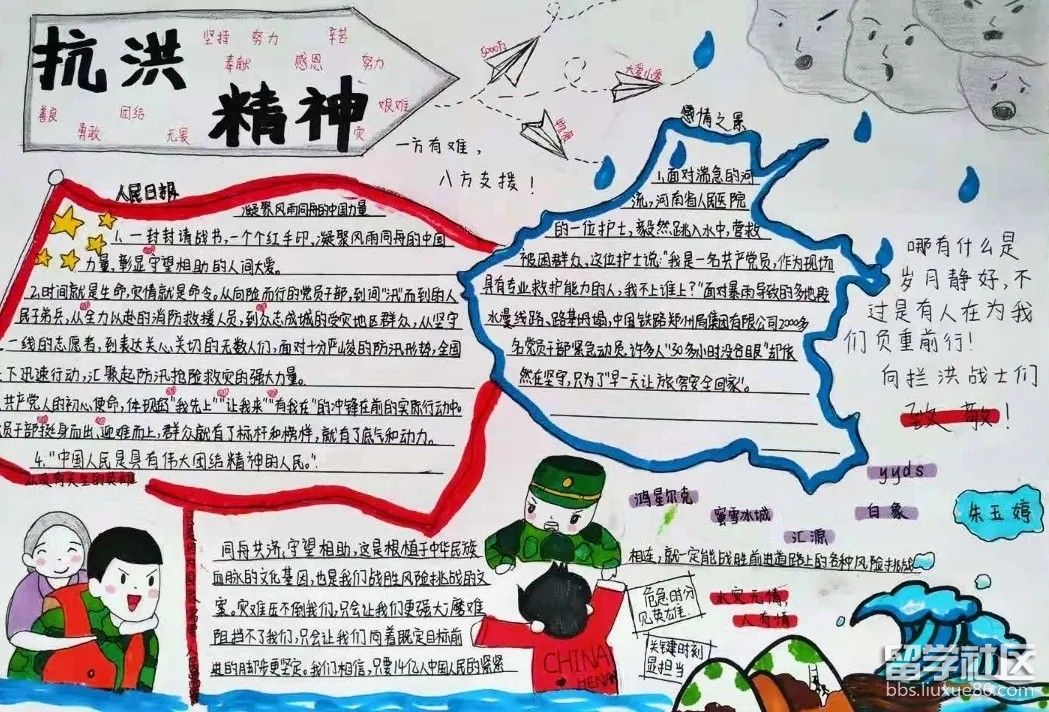 抗洪
精神
坚持 努力 辛苦
奉献 感恩 努力
善良 团结 艰难
勇敢 无畏 灾
5000万
大爱小爱
一方有难，
八方支援！
人民日报
凝聚风雨同舟的中国力量
1、一封封请战书，一个个红手印，凝聚风雨同舟的中国
力量，彰显守望相助的人间大爱。
2.时间就是生命，灾情就是命令。从向险而行的党员干部，到闻“汛”而到的人
民子弟兵，从全力以赴的消防救援人员，到众志成城的受灾地区群众，从坚守
一线的志愿者，到表达关心关切的无数人们，面对十分严峻的防汛形势，全国
上下迅速行动，汇聚起防汛抢险救灾的强大力量。
共产党人的初心使命，体现在“我先上”“让我来”“有我在”的冲锋在前的实际行动中。
党员干部挺身而出、迎难而上，群众就有了标杆和榜样，就有了底气和动力。
4.“中国人民是具有伟大团结精神的人民。”
没有天生的英雄
感情之景
1.面对湍急的河
流，河南省人民医院
的一位护士，毅然跳入水中，营救
被困群众，这位护士说：“我是一名共产党员，作为现场
具有专业救护能力的人，我不上谁上？”面对暴雨导致的多地段
水漫线路、路基坍塌，中国铁路郑州局集团有限公司2000多
名党员干部紧急动员。许多人“30多小时没合眼”却依
然在坚守，只为了“早一天让旅客安全回家”。
哪有什么是
岁月静好，不
过是有人在为我
们负重前行！
向拦洪战士们
致敬！
同舟共济，守望相助，这是根植于中华民族
血脉的文化基因，也是我们战胜风险挑战的文
案。灾难压不倒我们，只会让我们更强大；磨难
阻挡不了我们，只会让我们向着既定目标前
进的月却步更坚定。我们相信，只要14亿人中国人民的紧紧
相连，就一定能战胜前进道路上的各种风险挑战
CHINA
HENAN
鸿星尔克
蜜雪冰城
汇源
白象
yyds
朱五婷
危急时分
见英雄
关键时刻
显担当
水灾无情，
人有情
留学社区
bbs.liuxue86.com